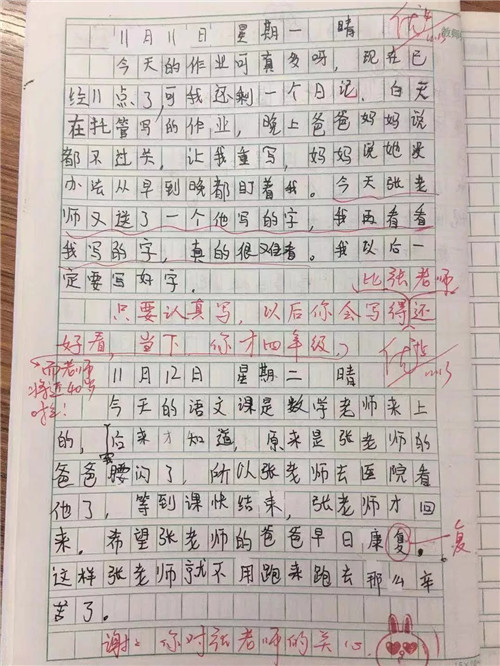 11月11日 星期一 晴
优
12.13
今天的作业可真多呀,现在已
经11点了,可我还剩一个日记,白天
在托管写的作业,晚上爸爸妈妈说
都不过关,让我重写,妈妈说她没
办法从早到晚都盯着我。今天张老
师又送了一个他写的字,我再看看
我写的字,真的很难看。我以后一
定要写好字。
比张老师
只要认真写,以后你会写得还
好看,当下,你才四年级。
而老师
将近40岁
啦!
优
12.13
11月12日 星期二 晴
今天的语文课是数学老师来上
的,后来才知道,原来是张老师的
爸爸腰闪了,所以张老师去医院看
他了,等到课快结束,张老师才回
来。希望张老师的爸爸早日康复。
复
这样张老师就不用跑来跑去那么辛
苦了。
谢谢你对张老师的关心